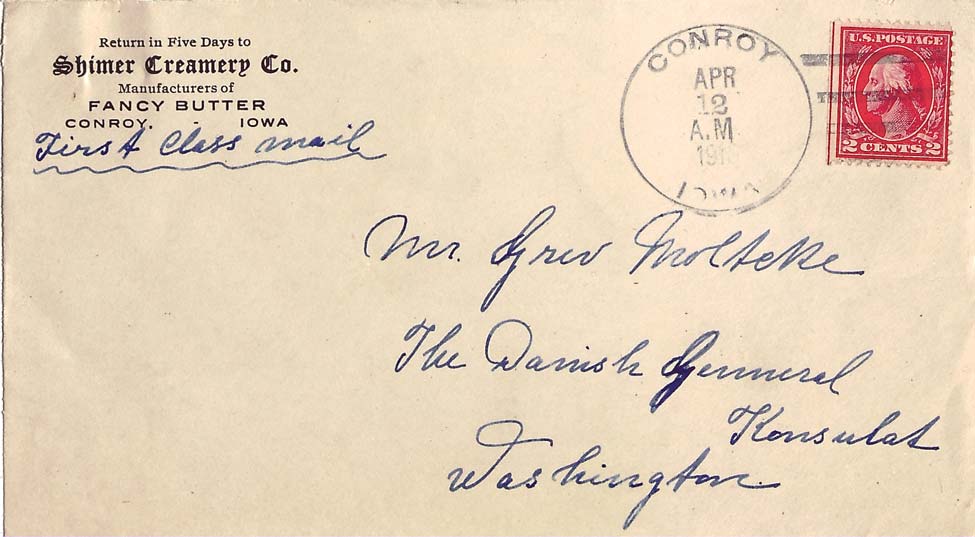 Return in Five Days to
Shimer Creamery Co.
Manufacturers of
FANCY BUTTER
CONROY, - IOWA
First Class mail
CONROY
APR
12
A.M
IOWA
U.S. POSTAGE
2 CENTS 2
Mr. Grev Moltcke
The Danish Genneral
Konsulat
Washington.